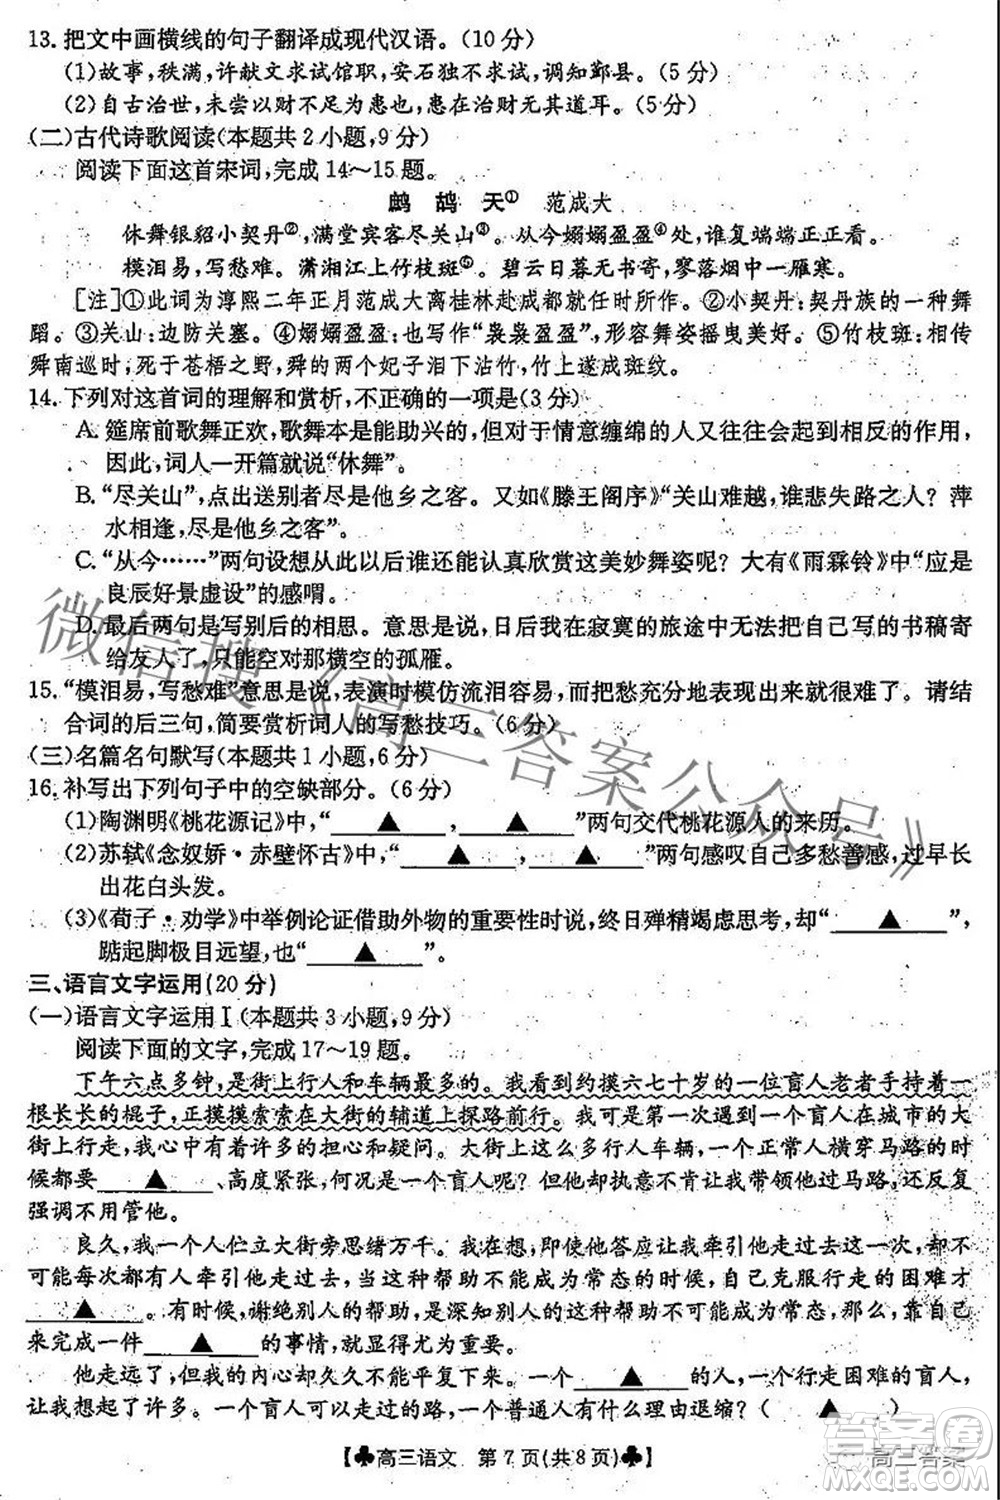 13.把文中画横线的句子翻译成现代汉语。(10分)
(1)故事,秩满,许献文求试馆职,安石独不求试,调知鄞县。(5分)
(2)自古治世,未尝以财不足为公患也,患在治财无其道耳。(5分)
(二)古代诗歌阅读(本题共2小题,9分)
阅读下面这首宋词,完成14～15题。
鹧鸪天① 范成大
休舞银貂小契丹②,满堂宾客尽关山③。从今嫋嫋盈盈④处,谁复端端正正看。
模泪易,写愁难。潇湘江上竹枝斑⑤。碧云日暮无书寄,寥落烟中一雁寒。
[注]①此词为淳熙二年正月范成大离桂林赴成都任时所作。②小契丹:契丹族的一种舞
蹈。③关山:边防关塞。④嫋嫋盈盈:也作“袅袅盈盈”,形容舞姿摇曳美好。⑤竹枝斑:相传
舜南巡时,死于苍梧之野,舜的两个妃子泪下沾竹,竹上遂成斑纹。
14.下列对这首词的理解和赏析,不正确的一项是(3分)
A.筵席前歌舞正欢,歌舞本是能助兴的,但对于情意缠绵的人又往往会起到相反的作用,
因此,词人一开篇就说“休舞”。
B.“尽关山”,点出送别者都是他乡之客。又如《滕王阁序》“关山难越,谁悲失路之人？萍
水相逢,尽是他乡之客”。
C.“从今……”两句设想从此以后谁还能认真欣赏这美妙舞姿呢？大有《雨霖铃》中“应是
良辰好景虚设”的感喟。
D.最后两句是写别后的相思。意思是说,我在寂寞的旅途中无法把自己写的书稿寄
给友人了,只能空对那横空的孤雁。
15.“模泪易,写愁难”意思是说,表演时模仿流泪容易,而把愁充分地表现出来就很难了。请结
合词的后三句,简要赏析词人的写愁技巧。(6分)
(三)名篇名句默写(本题共1小题,6分)
16.补写出下列句子中的空缺部分。(6分)
(1)陶渊明《桃花源记》中,“▲,▲”两句交代桃花源人的来历。
(2)苏轼《念奴娇·赤壁怀古》中,“▲,▲”两句感叹自己多愁善感,过早长
出花白头发。
(3)《荀子·劝学》中举例论证借助外物的重要性时说,终日殚精竭虑思考,却“▲”,
踮起脚极目远望,也“▲”。
三、语言文字运用(20分)
(一)语言文字运用Ⅰ(本题共3小题,9分)
阅读下面的文字,完成17～19题。
下午六点多钟,是街上行人和车辆最多的。我看到约摸六七十岁的一位盲人老者手持着一
根长长的棍子,正摸摸索索在大街的辅道上探路前行。我可是第一次遇到一个盲人在城市的大
街上行走,我心中有着许多的担心和疑问。大街上这么多行人车辆,一个正常人横穿马路的时
候都要▲、高度紧张,何况是一个盲人呢？但他却执意不肯让我带领他走过马路,还反复
强调不用管他。
良久,我一个人伫立大街旁思绪万千。我在想,即使他答应让我牵引他走过去这一次,却不
可能每次都有人牵引他走过去,这不可能成为常态的事情。对于他而言,自己克服行走的困难才
▲。有时候,谢绝别人的帮助,是深知别人的这种帮助不可能成为常态,那么,靠自己
来完成一件▲的事情,就显得尤为重要。
他走远了,但我的内心却久久不能▲,一个行走困难的盲人,
让我想起了许多。一个盲人可以走过去的路,一个普通人有什么理由退缩？(▲)
【♣高三语文 第7页(共8页)♣】
微信搜《高三答案公众号》
答案圈
高三答案
MXQE.COM